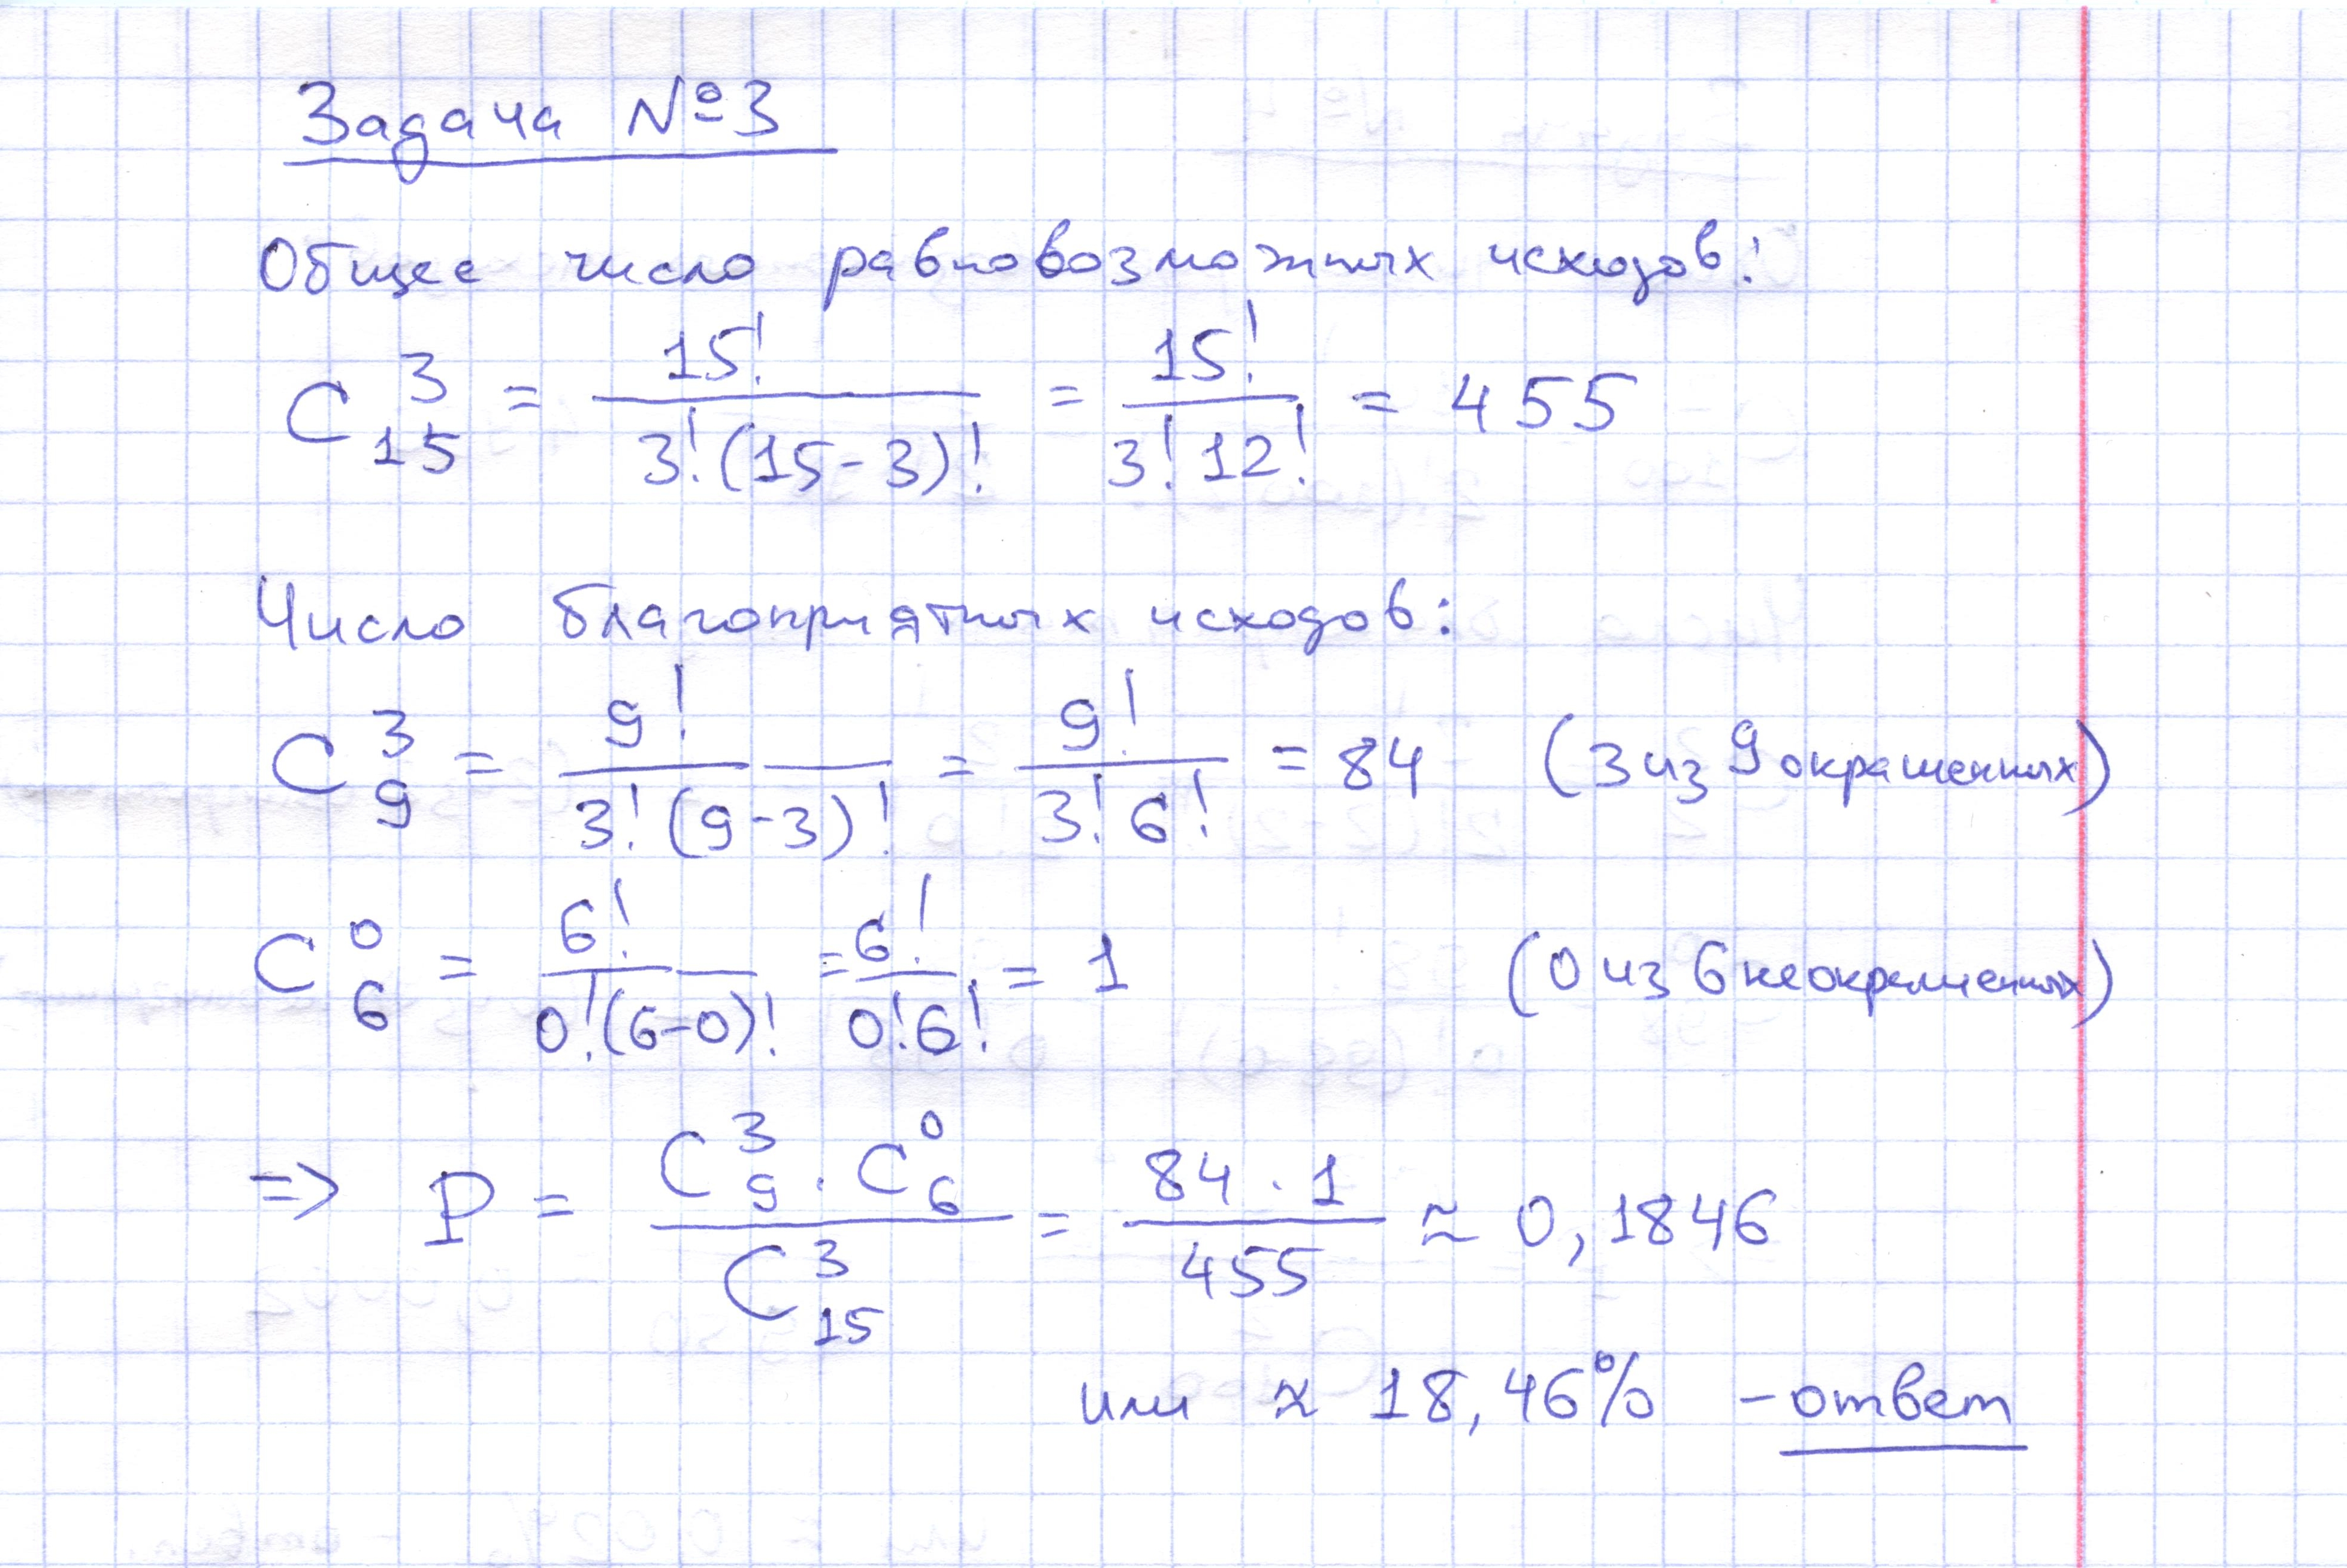 Задача №3
Общее число равновозможных исходов:
C₁₅³ = 15! / 3!(15-3)! = 15! / 3!12! = 455
Число благоприятных исходов:
C₉³ = 9! / 3!(9-3)! = 9! / 3!6! = 84 (3 из 9 окрашенных)
C₆⁰ = 6! / 0!(6-0)! = 6! / 0!6! = 1 (0 из 6 неокрашенных)
=> P = C₉³ · C₆⁰ / C₁₅³ = 84 · 1 / 455 ≈ 0,1846
или ≈ 18,46% - ответ